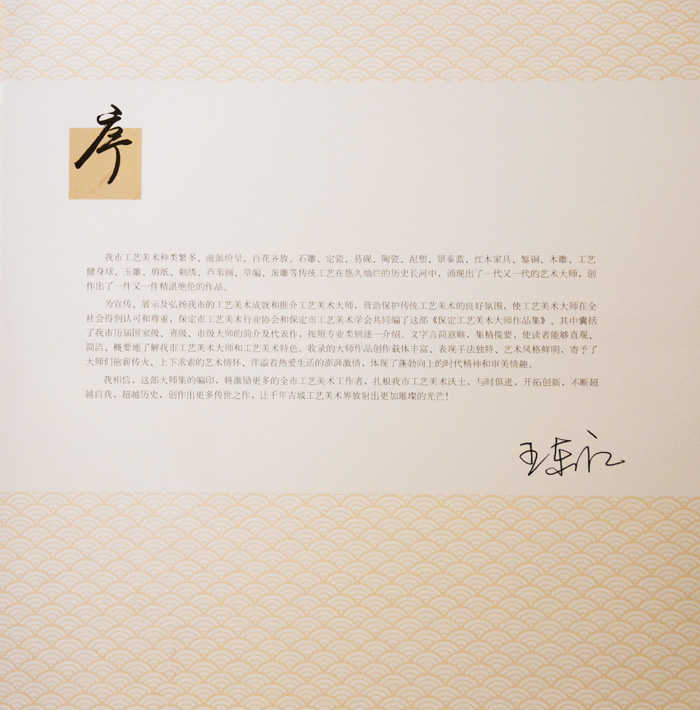 序
我市工艺美术种类繁多、流派纷呈、百花齐放。石雕、定瓷、易砚、陶瓷、泥塑、景泰蓝、红木家具、錾铜、木雕、工艺
健身球、玉雕、剪纸、刺绣、芦苇画、草编、蛋雕等传统工艺在悠久灿烂的历史长河中，涌现出了一代又一代的艺术大师，创
作出了一件又一件精湛绝伦的作品。
为宣传、展示及弘扬我市的工艺美术成就和推介工艺美术大师，营造保护传统工艺美术的良好氛围，使工艺美术大师在全
社会得到认可和尊重，保定市工艺美术行业协会和保定市工艺美术学会共同编了这部《保定工艺美术大师作品集》。其中囊括
了我市历届国家级、省级、市级大师的简介及代表作，按照专业类别逐一介绍。文字言简意赅，集精揽要，使读者能够直观、
简洁、概要地了解我市工艺美术大师和工艺美术特色。收录的大师作品创作载体丰富、表现手法独特、艺术风格鲜明，寄予了
大师们抱薪传火、上下求索的艺术情怀，洋溢着热爱生活的澎湃激情，体现了蓬勃向上的时代精神和审美情趣。
我相信，这部大师集的编印，将激励更多的全市工艺美术工作者，扎根我市工艺美术沃土，与时俱进，开拓创新，不断超
越自我，超越历史，创作出更多传世之作，让千年古城工艺美术界放射出更加璀璨的光芒！